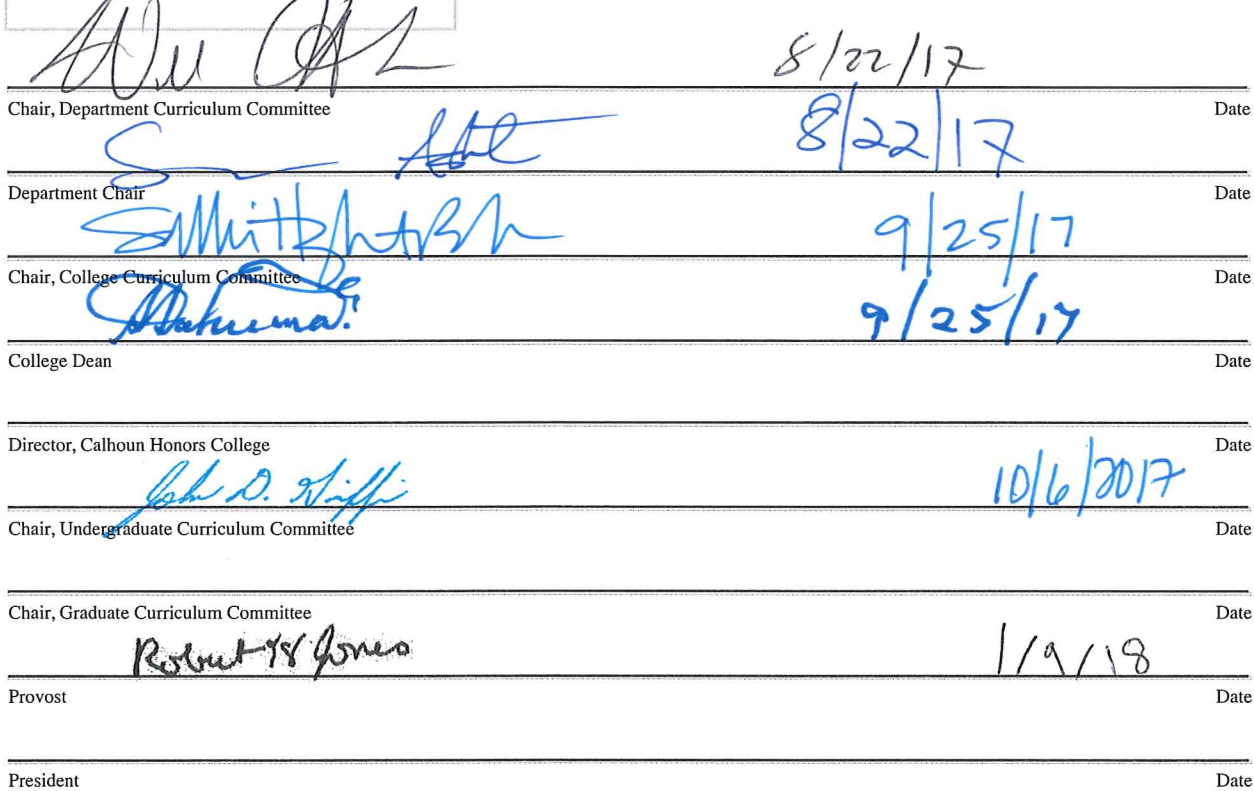 8/22/17
Chair, Department Curriculum Committee Date
8/22/17
Department Chair Date
9/25/17
Chair, College Curriculum Committee Date
9/25/17
College Dean Date
Director, Calhoun Honors College Date
John D. Griffi 10/6/2017
Chair, Undergraduate Curriculum Committee Date
Chair, Graduate Curriculum Committee Date
Robert H Jones 1/9/18
Provost Date
President Date